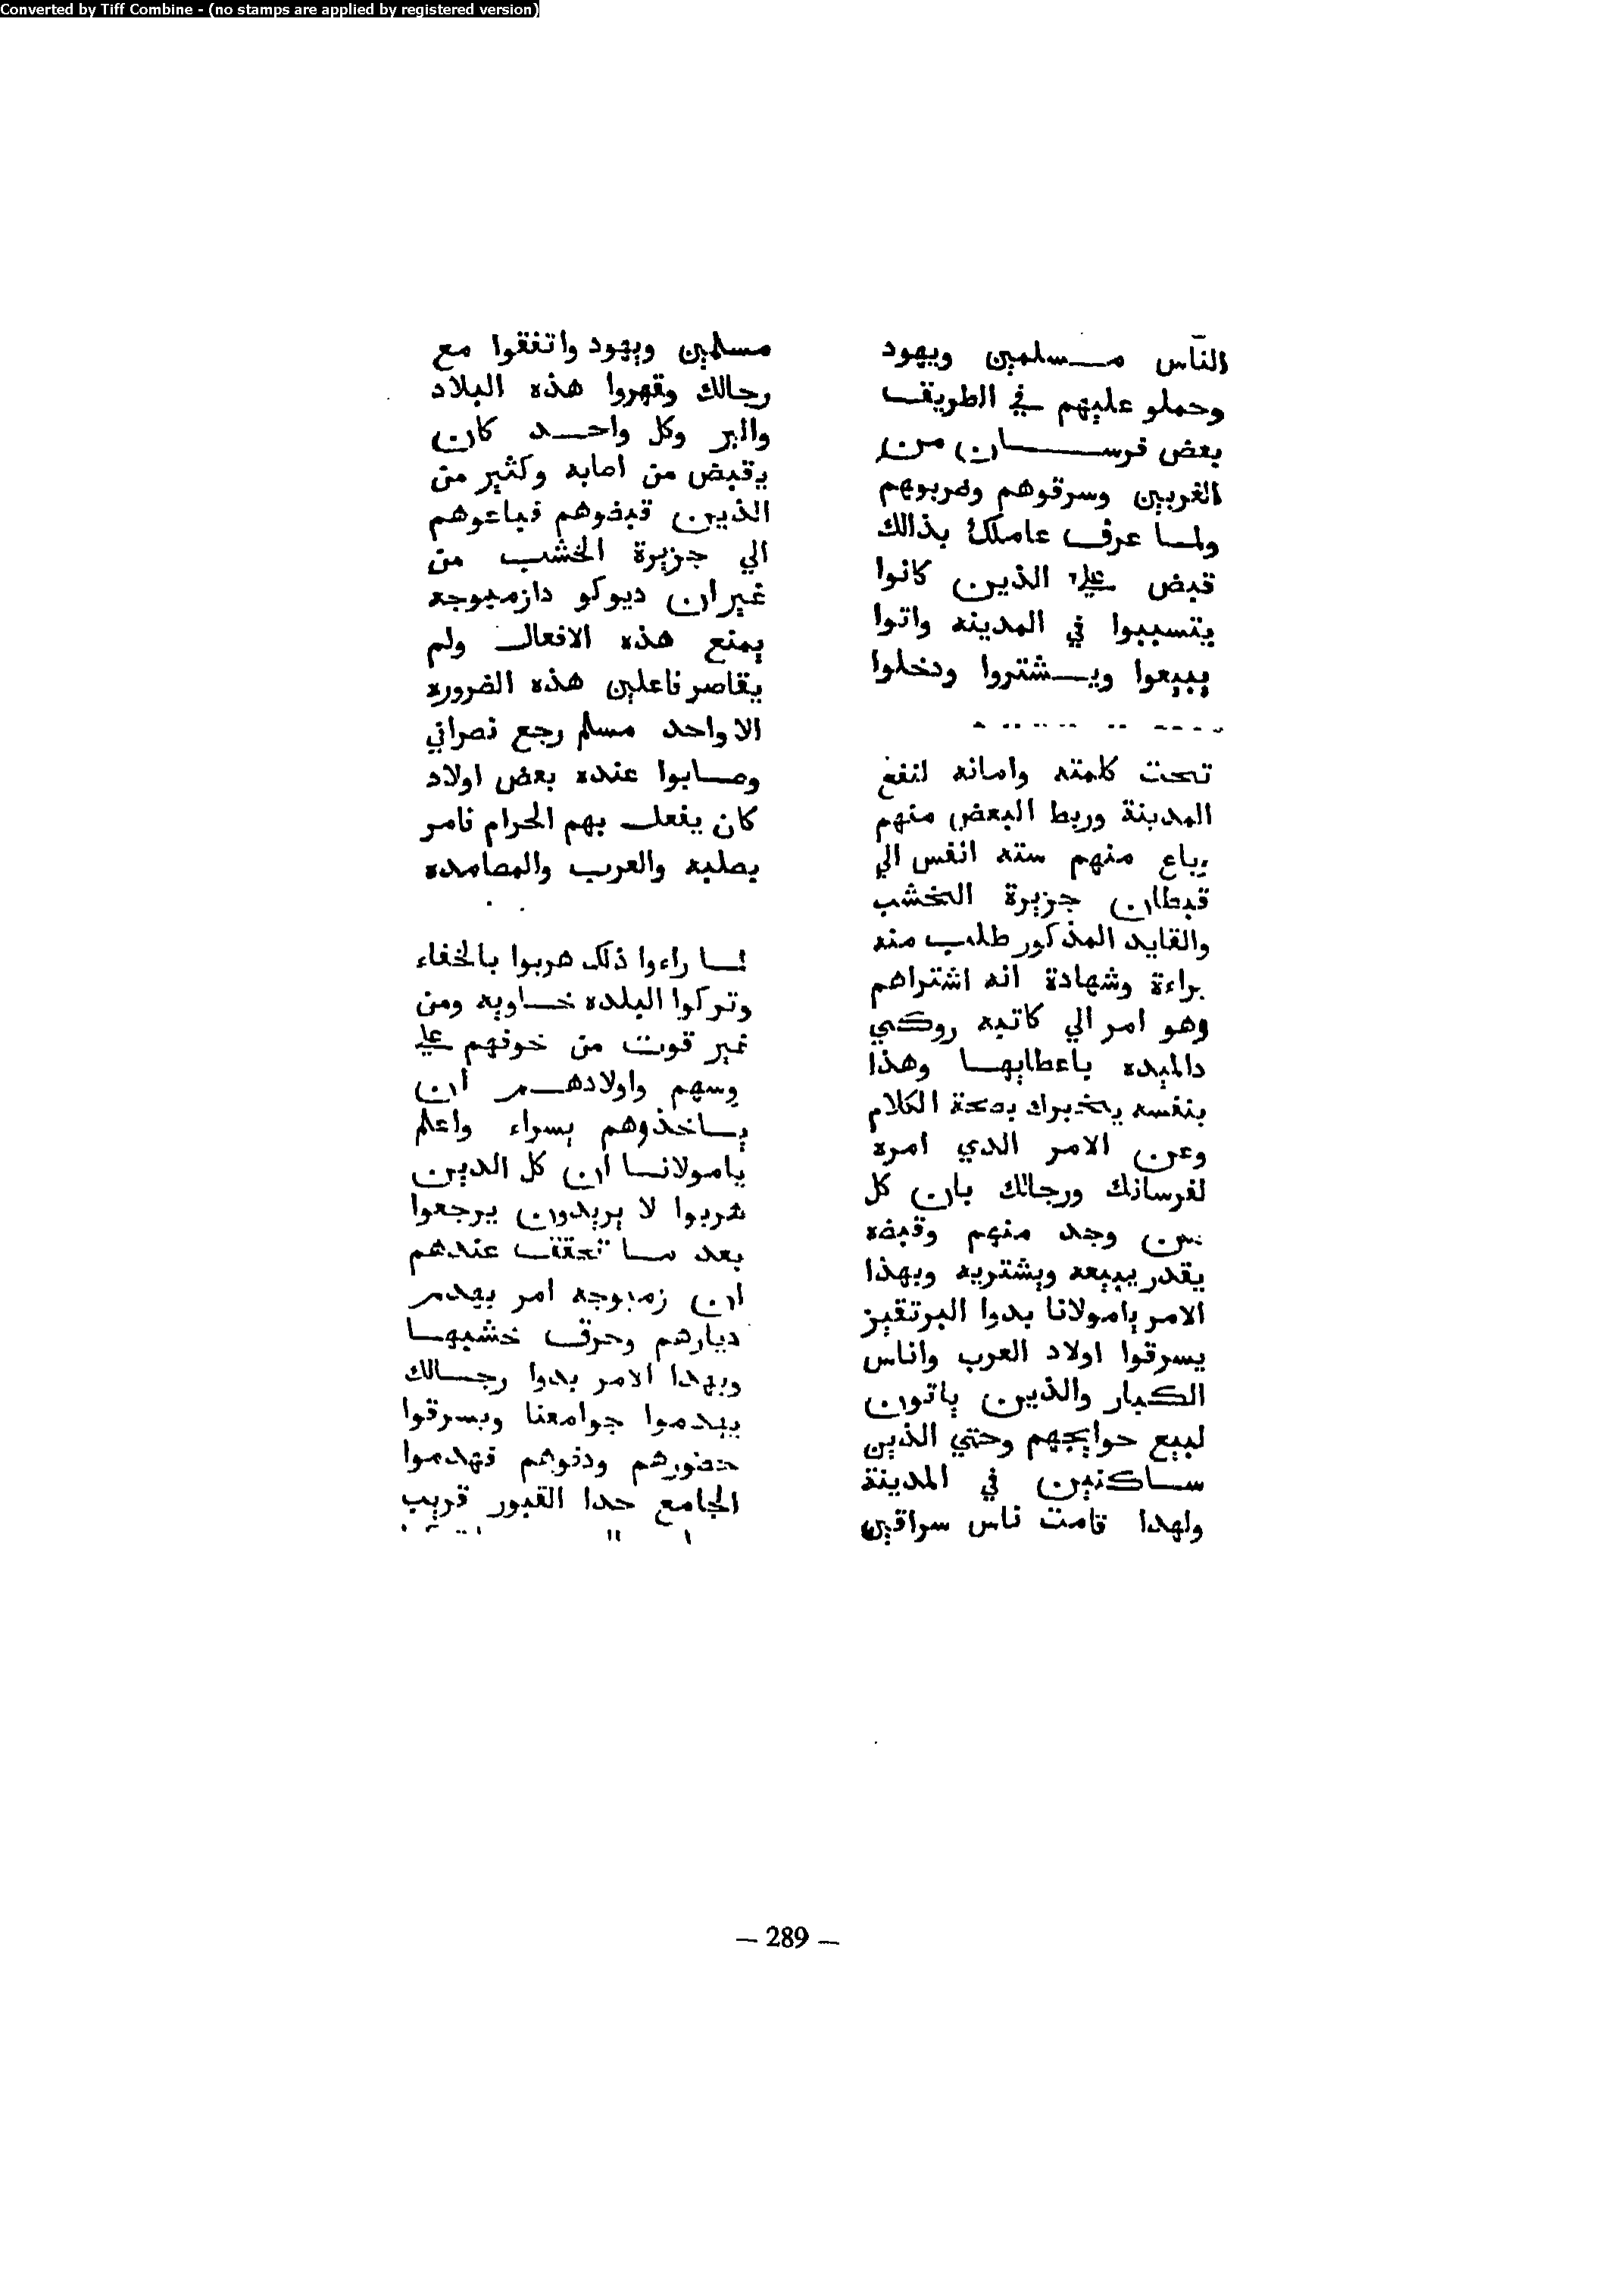 Converted by Tiff Combine - (no stamps are applied by registered version)
الناس مسلمين ويهود
وحملو عليهم في الطريق
بعض فرسان من
الغربين وسرقوهم وضربوهم
ولما عرف عاملك بذالك
قبض علي الذين كانوا
يتسببوا في المدينه واتوا
يبيعوا ويشتروا ودخلوا
تحت كلمته وامانه لنفع
المدينة وربط البعض منهم
وباع منهم سته انفس الي
قبطان جزيرة الخشب
والقايد المذكور طلب منه
براءة وشهادة انه اشتراهم
وهو امر الي كاتبه روكي
دالميده باعطايها وهذا
بنفسه يخبرك بصحة الكلام
وعن الامر الدي امره
لفرسانك ورجالك بان كل
من وجد منهم وقبضه
يقدر يبيعه ويشتريه وبهذا
الامر يامولانا بدوا البرتقيز
يسرقوا اولاد العرب واناس
الكبار والذين ياتون
لبيع حوايجهم وحتي الذين
ساكنين في المدينة
ولهدا قامت ناس سراقين
مسلمين ويهود واتفقوا مع
رجالك وقهروا هذه البلاد
والبر وكل واحد كان
يقبض من اصابه وكثير من
الذين قبضوهم فباعوهم
الي جزيرة الخشب من
غيران ديوكو دازمبوجه
يمنع هذه الافعال ولم
يقاصر فاعلين هذه الضروره
الا واحد مسلم رجع نصراني
وصابوا عنده بعض اولاد
كان يفعل بهم الحرام فامر
بصلبه والعرب والمصامده
لما راءوا ذلك هربوا بالخفاء
وتركوا البلده خاويه ومن
غير قوت من خوفهم علي
وسهم واولادهم ان
ياخذوهم بسراء واعلم
يامولانا ان كل الدين
هربوا لا يريدون يرجعوا
بعد ما تحقق عندهم
ان زمبوجه امر بهدم
ديارهم وحرق خشبها
وبهدا الامر بدوا رجالك
يهدموا جوامعنا ويسرقوا
حضورهم ودفوهم فهدموا
الجامع حدا القبور قريب
– 289 –